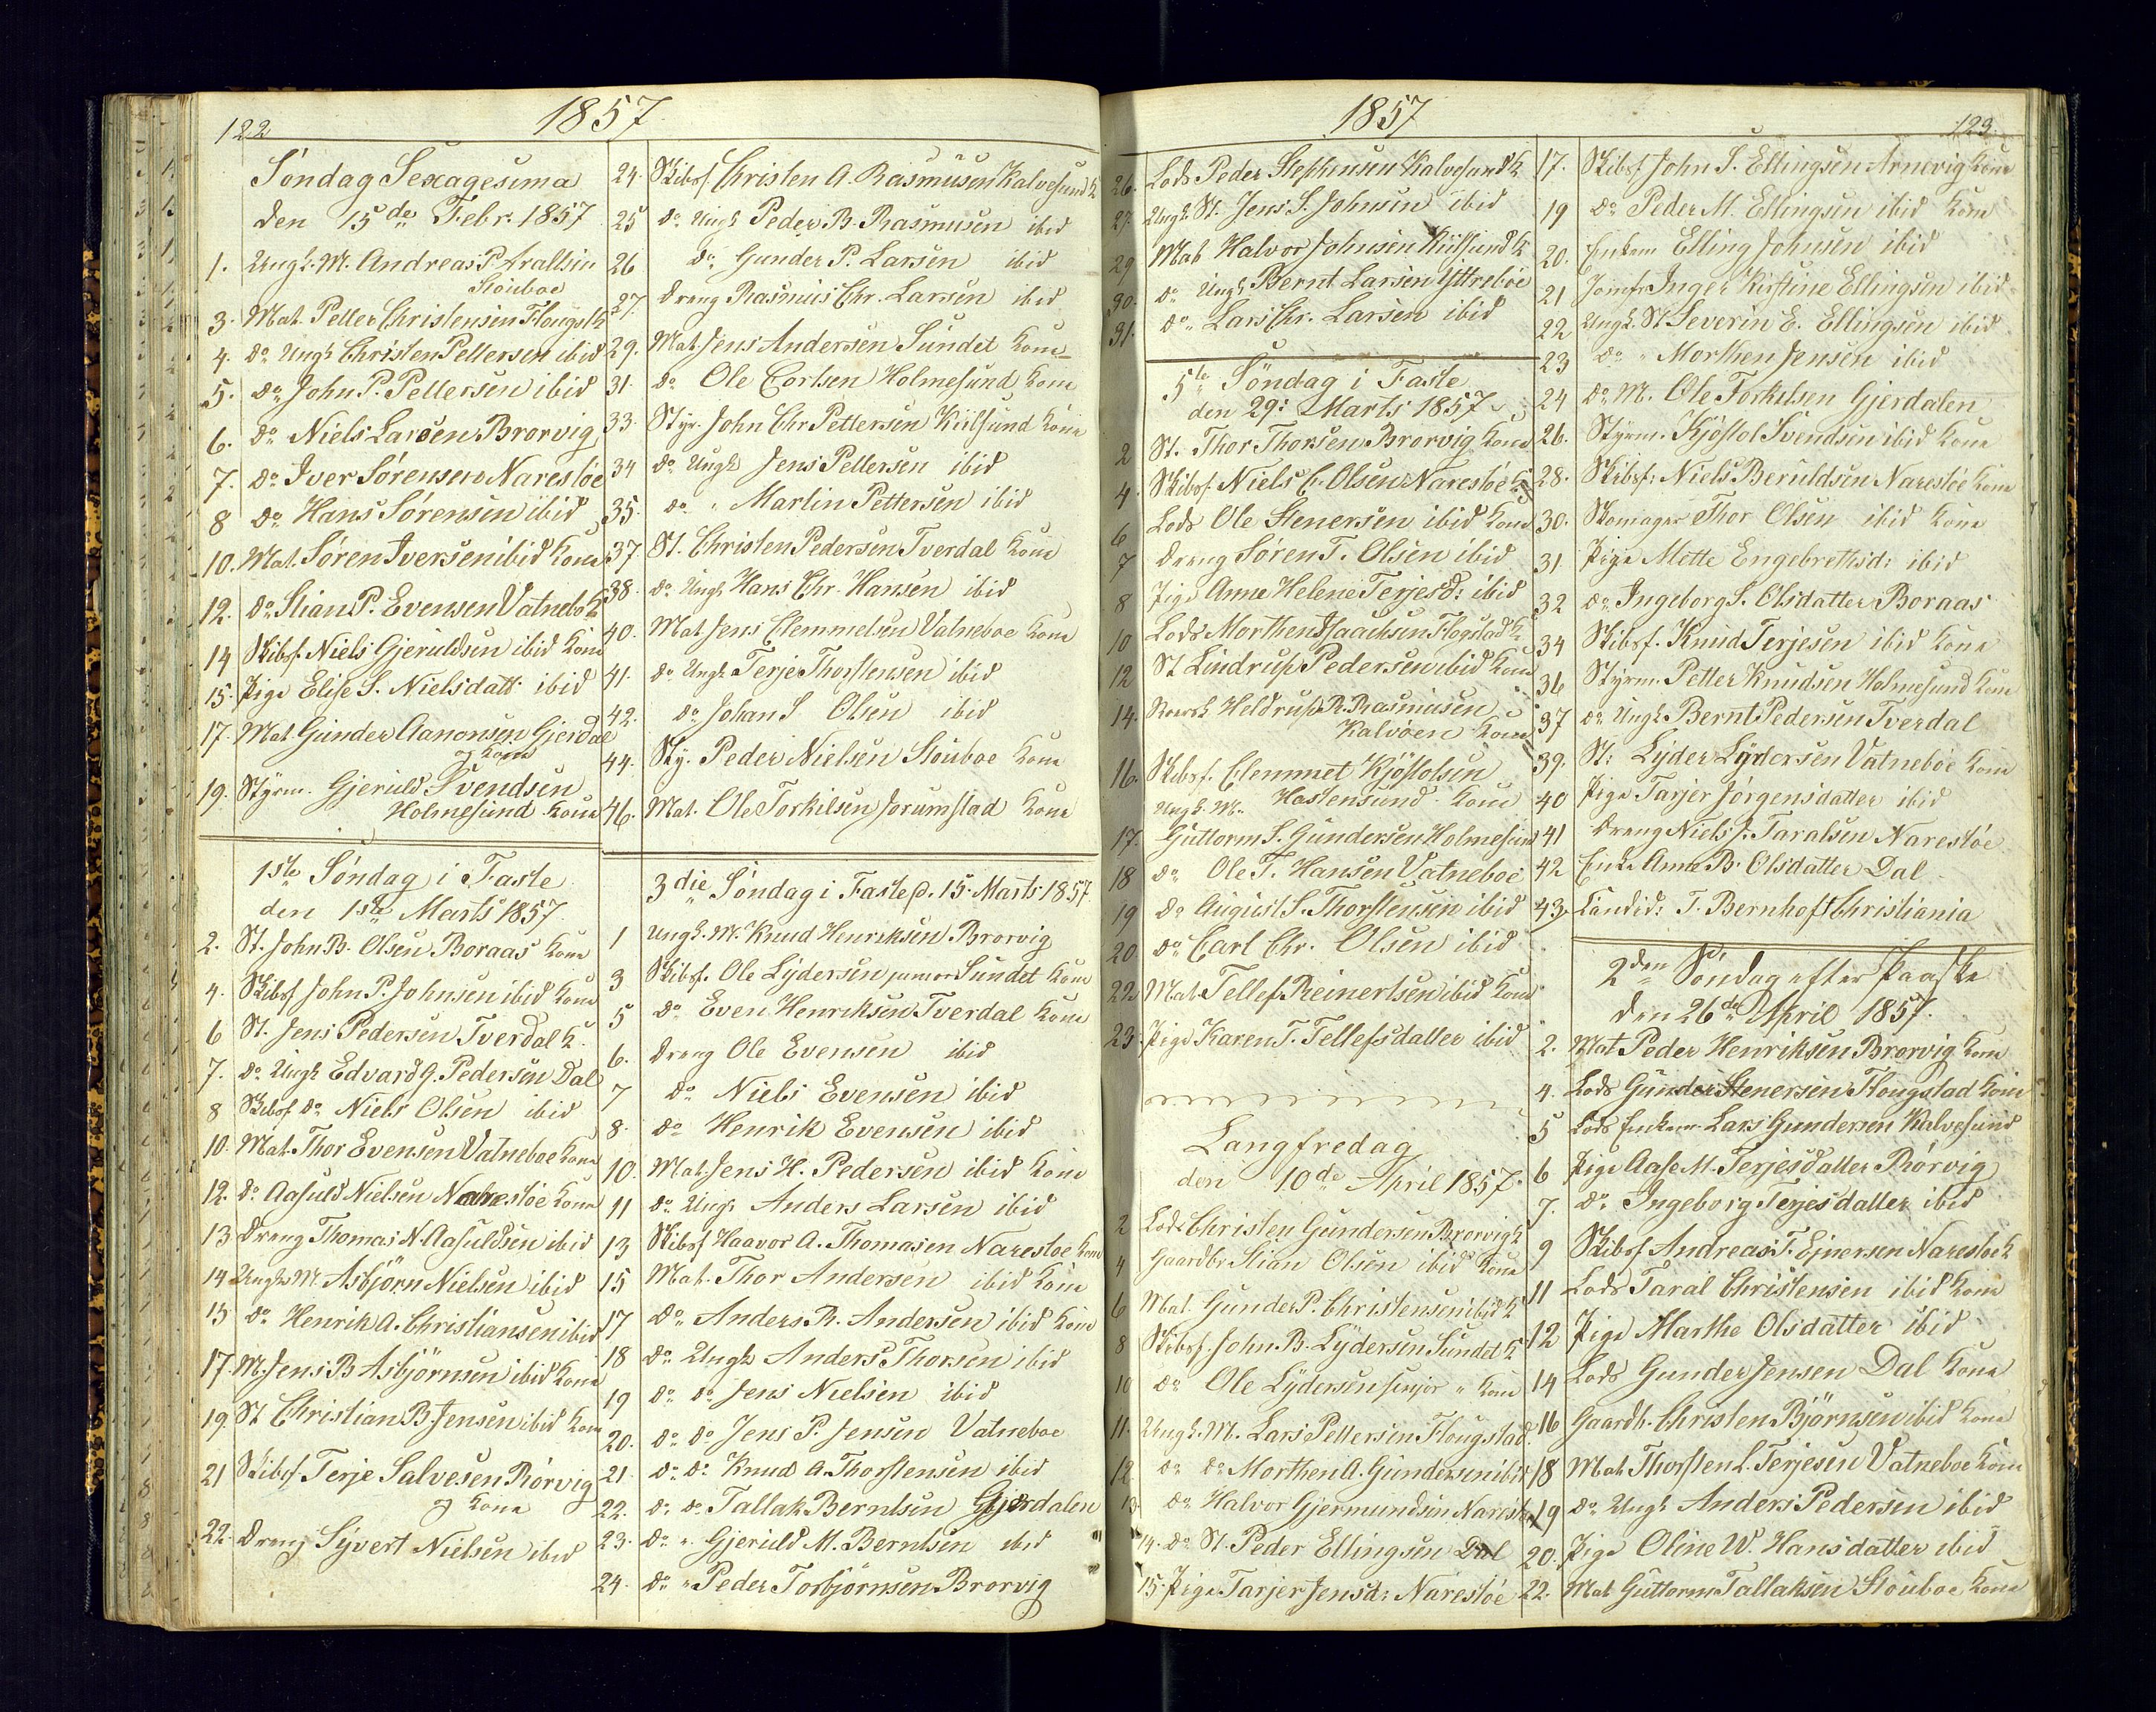 122
1857
Søndag Sexagesima
den 15de Febr. 1857
1. Ungk. M. Andreas P. Arallsen
Stouboe
3. Mat. Petter Christensen Flougst. K
4. do Ungk Christen Pettersen ibid
5. do John P. Pettersen ibid
6. do Niels Larsen Brorvig
7. do Iver Sørensen Narestøe
8 do Hans Sørensen ibid
10. Mat. Søren Iversen ibid Kone
12. do Stian P. Evensen Vatneboe K
14 Skibsf. Niels Gjeruldsen ibid Kone
15. Pige Elise S. Nielsdatt. ibid
17. Mat. Gunder Aanonsen Gjerdal
og Kone
19. Styrm. Gjeruld Svendsen
Holmesund Kone
1ste Søndag i Faste
den 1ste Marts 1857
2. St. John B. Olsen Boraas Kone
4. Skibsf John P. Johnsen ibid Kone
6 St. Jens Pedersen Tverdal K.
7. do Ungk Edvard G. Pedersen Dal
8 Skibsf. do Niels Olsen ibid
10. Mat. Thor Evensen Vatneboe Kone
12. do Aasuld Nielsen Narestøe Kone
13 Dreng Thomas N. Aasuldsen ibid
14 Ungk M. Asbjörn Nielsen ibid
15 do Henrik A. Christiansen ibid
17. M. Jens B Asbjörnsen ibid Kone
19. St Christian B. Jensen ibid Kone
21 Skibsf. Terje Salvesen Rörvig
og Kone
22. Dreng Syvert Nielsen ibid
24. Skibsf. Christen A. Rasmusen Kalvesund K
25 do Ungk Peder B. Rasmusen ibid
26 do Gunder P. Larsen ibid
27. Dreng Rasmus Chr. Larsen ibid
29. Mat. Jens Andersen Sundet Kone
31. do Ole Corlsen Holmesund Kone
33. Styr. John Chr Pettersen Kiilsund Kone
34 do Ungk Jens Pettersen ibid
35. do " Martin Pettersen ibid
37. St. Christen Pedersen Tverdal Kone
38. do Ungk Hans Chr. Hansen ibid
40. Mat Jens Clemmetsen Vatneboe Kone
41. do Ungk Terje Thorstensen ibid
42. do Johan S. Olsen ibid
44. Sty. Peder Nielsen Stouboe Kone
46. Mat. Ole Torkilsen Jorumstad Kone
3die Søndag i Faste d. 15. Marts 1857
1 Ungk. M. Knud Henriksen Brorvig
3 Skibsf. Ole Lydersen junior Sundet Kone
5 do Even Henriksen Tverdal Kone
6. Dreng Ole Evensen ibid
7 do Niels Evensen ibid
8. do Henrik Evensen ibid
10. Mat. Jens H. Pedersen ibid Kone
11 do Ungk Anders Larsen ibid
13 Skibsf Haavor A. Thomasen Narestoe Kone
15 Mat. Thor Andersen ibid Kone
17 do Anders R. Andersen ibid Kone
18 do Ungk Anders Thorsen ibid
19 do do Jens Nielsen ibid
20. do do Jens P. Jensen Vatneboe
21. do do Knud A. Thorstensen ibid
22. do do Tallak Berntsen Gjerdalen
23. do " Gjeruld M. Berntsen ibid
24. do " Peder Torbjörnsen Brorvig
1857
123
26. Lods Peder Stephensen Kalvesund K
27. Ungk. St. Jens S. Johnsen ibid
29 Mat Halvor Johnsen Kiilsund K
30. do Ungk Bernt Larsen Yttreböe
31. do Lars Chr. Larsen ibid
5te Söndag i Faste
den 29: Marts 1857
2 St. Thor Thorsen Brorvig Kone
4 Skibsf. Niels C. Olsen Narestöe K
6 Lods Ole Stenersen ibid Kone
7 Dreng Søren T. Olsen ibid
8 Pige Anne Helene Terjesd: ibid
10 Lods Morthen Isaachsen Flogstad K
12 St Lindrup Pedersen ibid Kone
14. Heldrup R. Rasmusen
Kalvöen Kone
16. Skibsf. Clemmet Kjöstolsen
Hastensund Kone
Ungk. M.
17. Guttorm S. Gundersen Holmesund
18 do Ole T. Hansen Vatneboe
19 do August S. Thorstensen ibid
20. do Carl Chr. Olsen ibid
22. Mat. Tellef Reinertsen ibid Kone
23. Pige Karen T. Tellefsdatter ibid
Langfredag
den 10de April 1857.
2 Lods Christen Gundersen Brorvig K
4 Gaardbr Stian Olsen ibid Kone
6 Mat. Gunder P. Christensen ibid K
8 Skibsf. John B. Lydersen Sundet K
10 do Ole Lydersen senjor " Kone
11. Ungk. M. Lars Pettersen Flougstad
12. do do Morthen A. Gundersen ibid
13. do Halvor Gjermundsen Narestøe
14. do St. Peder Ellingsen Dal
15. Pige Tarjer Jensd: Narestöe
17. Skibsf John S. Ellingsen Arnevig Kone
19 do Peder M. Ellingsen ibid Kone
20. Enkem Elling Johnsen ibid
21 Jomfr Inger Kirstine Ellingsen ibid
22 Ungk. St Severin E. Ellingsen ibid
23 do " Morthen Jensen ibid
24 do M. Ole Torkilsen Gjerdalen
26. Styrm. Kjöstol Svendsen ibid Kone
28. Skibsf: Niels Beruldsen Narestöe Kone
30. Skomager Thor Olsen ibid Kone
31 Pige Mette Engebrethsd: ibid
32 do Ingeborg S. Olsdatter Boraas
34 Skibsf. Knud Terjesen ibid Kone
36 Styrm. Petter Knudsen Holmesund Kone
37 do Ungk Bernt Pedersen Tverdal
39. St: Lyder Lydersen Vatneböe Kone
40 Pige Tarjer Jörgensdatter ibid
41 Dreng Niels J. Taralsen Narestöe
42 Enke Anna B. Olsdatter Dal
43. Candid: T. Bernhoft Christiania
2den Söndag efter Paaske
den 26de April 1857.
2. Mat Peder Henriksen Brorvig Kone
4. Lods Gunder Stenersen Flougstad Kone
5 Lods Enkem Lars Gundersen Kalvesund
6 Pige Aase M. Terjesdatter Rörvig
7. do Ingeborg Terjesdatter ibid
9 Skibsf. Andreas T. Ejnersen Narestöe K
11 Lods Taral Christensen ibid Kone
12 Pige Marthe Olsdatter ibid
14 Lods Gunder Jensen Dal Kone
16 Gaardb. Christen Björnsen ibid Kone
18 Mat Thorsten L. Terjesen Vatneboe Kone
19 do Ungk Anders Pedersen ibid
20. Pige Oline W. Hansdatter ibid
22. Mat Guttorm Tallaksen Stouboe Kone